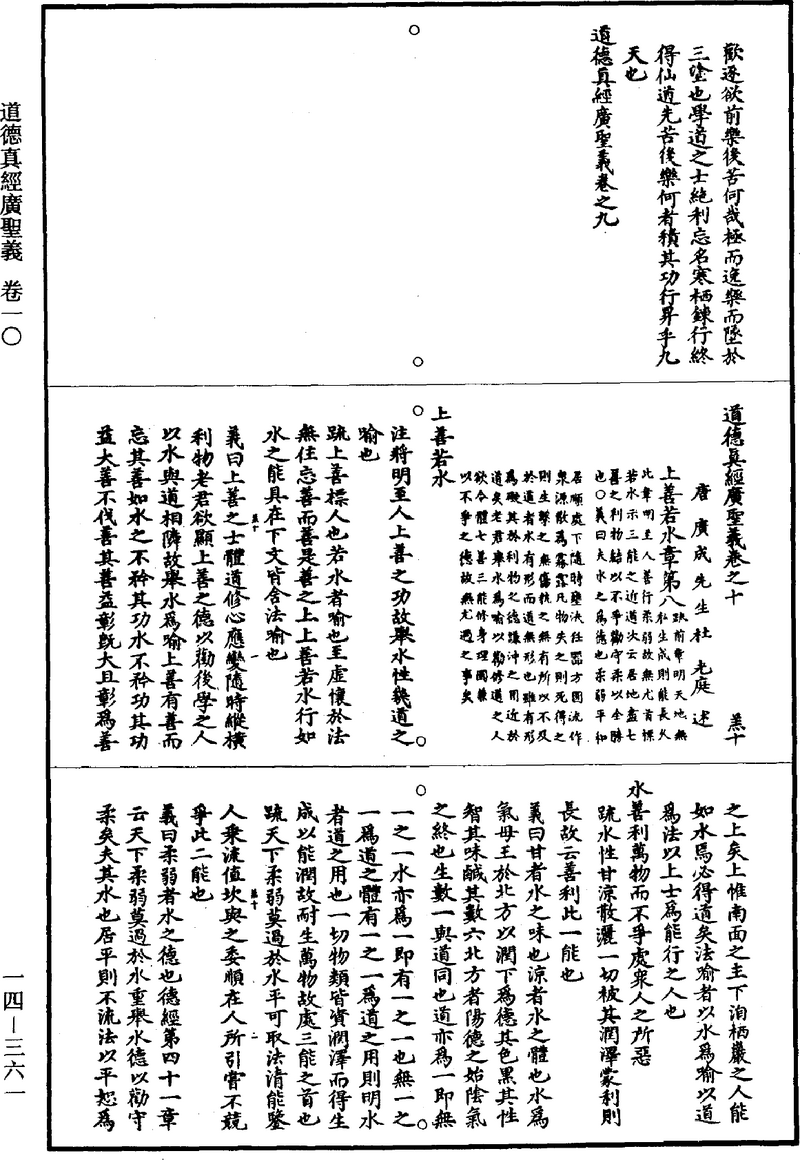 道德真經廣聖義　卷一〇
一四－三六一
歡逐欲前樂後苦何哉極而逸樂而墜於
三塗也學道之士絶利忘名寒栖鍊行終
得仙道先苦後樂何者積其功行昇乎九
天也
道德真經廣聖義卷之九
道德真經廣聖義卷之十　羔十
唐廣成先生杜光庭述
上善若水章第八
疏前章明天地無
私生成則能長久
此章明至人善行柔弱故無尤首標
若水示三能之近道次云居地盡七
善之利物結以不爭勸守柔以全勝
也○義曰夫水之爲德也柔弱平和
居順處下隨時壅決任器方圓流作
衆源散爲霧露凡物失之則死得之
則生擊之無傷執之無有所以不及
於道者水有形而道無形也雖有形
爲礙其於利物之德謙沖之用近於
道矣老君舉水爲喻以勸修道之人
欲令體七善三能修身理國兼
以不爭之德故無尤過之事矣
上善若水
注將明至人上善之功故舉水性幾道之
喻也
疏上善標人也若水者喻也至虛懷於法
無住忘善而善是善之上上善若水行如
水之能具在下文皆含法喻也
羔十　一
義曰上善之士體道修心應變隨時縱橫
利物老君欲顯上善之德以勸後學之人
以水與道相隣故舉水爲喻上善有善而
忘其善如水之不矜其功水不矜功其功
益大善不伐善其善益彰既大且彰爲善
之上矣上惟南面之主下洎栖巖之人能
如水焉必得道矣法喻者以水爲喻以道
爲法以上士爲能行之人也
水善利萬物而不爭處衆人之所惡
疏水性甘涼散灑一切被其潤澤蒙利則
長故云善利此一能也
義曰甘者水之味也涼者水之體也水爲
氣母王於北方以潤下爲德其色黑其性
智其味鹹其數六北方者陽德之始陰氣
之終也生數一與道同也道亦爲一即無
一之一水亦爲一即有一之一也無一之
一爲道之體有一之一爲道之用則明水
者道之用也一切物類皆資潤澤而得生
成以能潤故耐生萬物故處三能之首也
疏天下柔弱莫過於水平可取法清能鑒
羔十　二
人乘流值坎與之委順在人所引嘗不競
爭此二能也
義曰柔弱者水之德也德經第四十一章
云天下柔弱莫過於水重舉水德以勸守
柔矣夫其水也居平則不流法以平恕爲